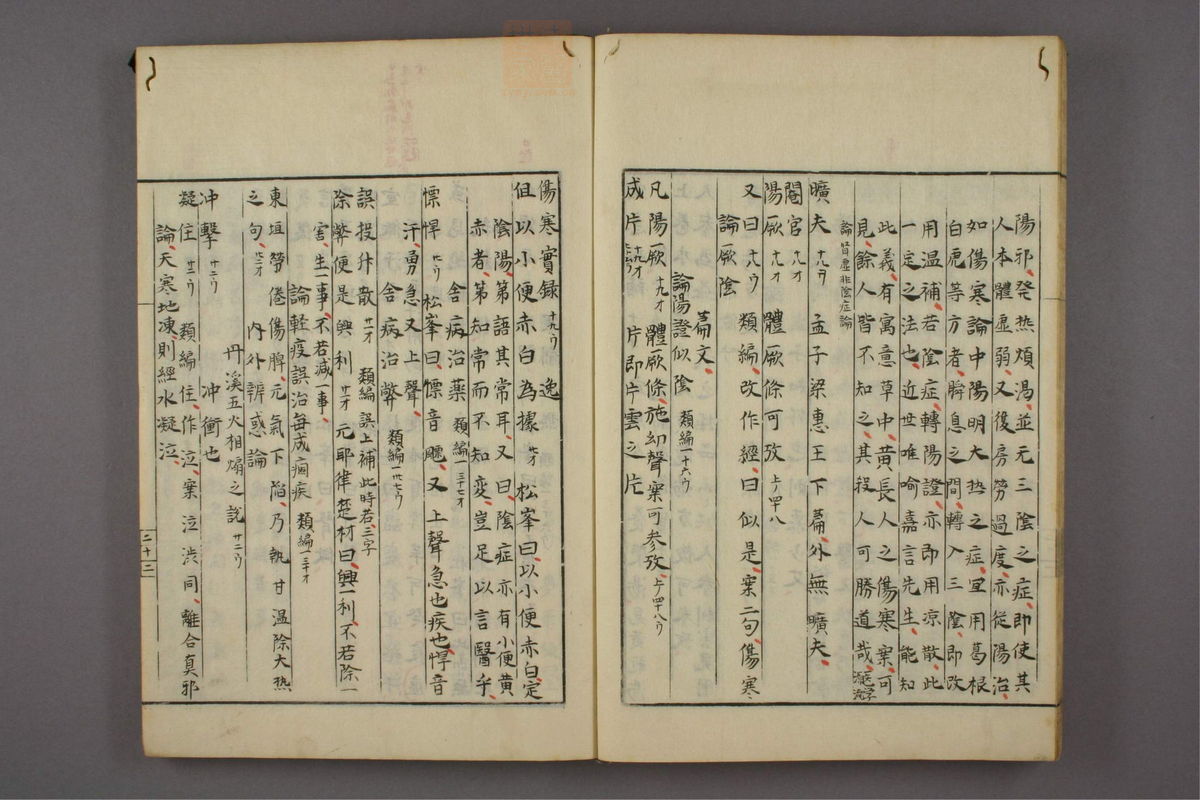 陽邪、発热煩渴、並元三陰之症、即使其
人本體虚弱、又後房勞過度、亦從陽治、
如傷寒論中陽明大热之症、宜用葛根
白虎等方者、瞬息之間、轉入三陰、即改
用温補、若陰症轉陽證、亦即用凉散、此
一定之法也、近世唯喻嘉言先生、能知
此義、有寓意草中、黄長人之傷寒案、可
見、餘人皆不知之、其殺人可勝道哉、
論腎虚非陰症論
曠夫 十八ウ 孟子梁惠王下篇、外無曠夫、
閹官 十九オ
陽厥 十九オ 體厥條可攷 上ノ四十八
又曰 十九ウ 類編、改作經、曰似是、案二句、傷寒
論厥陰
篇文、
論陽證似陰 類編一十六ウ
凡陽厥 十九オ 體厥條、施幼聲案可参攷、上ノ四十八ウ
成片 十九オ 片即片雲之片
傷寒實録 十九ウ 逸
但以小便赤白為據 廿オ 松峯曰、以小便赤白、定
陰陽、第語其常耳、又曰、陰症亦有小便黄
赤者、第知常而不知変、豈足以言醫乎、
舍病治藥 類編一三十七オ
慓悍 廿ウ 松峯曰、慓音飃、又上聲、急也疾也、悍音
汗、勇急、又上聲、
舍病治弊 類編一卅七ウ
誤投升散 廿一オ 類編誤上補此時若、三字
除弊便是興利 廿二オ 元耶律楚材曰、興一利、不若除一
害、生一事、不若減一事
論軽疫誤治毎成痼疾 類編一三十オ
東垣勞倦傷脾、元氣下陷、乃執甘温除大热
之句、廿二オ 内外辨惑論
丹溪五火相煽之説 廿二ウ
冲擊 廿二ウ 冲衝也
凝住 廿三ウ 類編住、作泣、案泣渋同、離合真邪
論、天寒地凍、則經水凝泣、
二十二